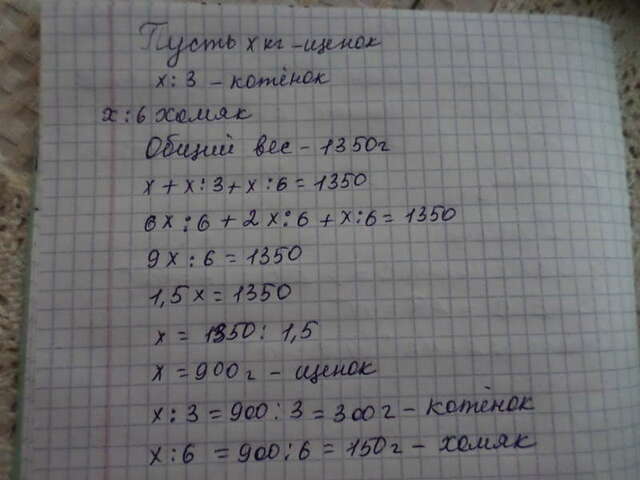 Пусть х кг - щенок
х : 3 - котёнок
х : 6 хомяк
Общий вес - 1350г
х + х : 3 + х : 6 = 1350
6х : 6 + 2х : 6 + х : 6 = 1350
9х : 6 = 1350
1,5х = 1350
х = 1350 : 1,5
х = 900г - щенок
х : 3 = 900 : 3 = 300г - котёнок
х : 6 = 900 : 6 = 150г - хомяк